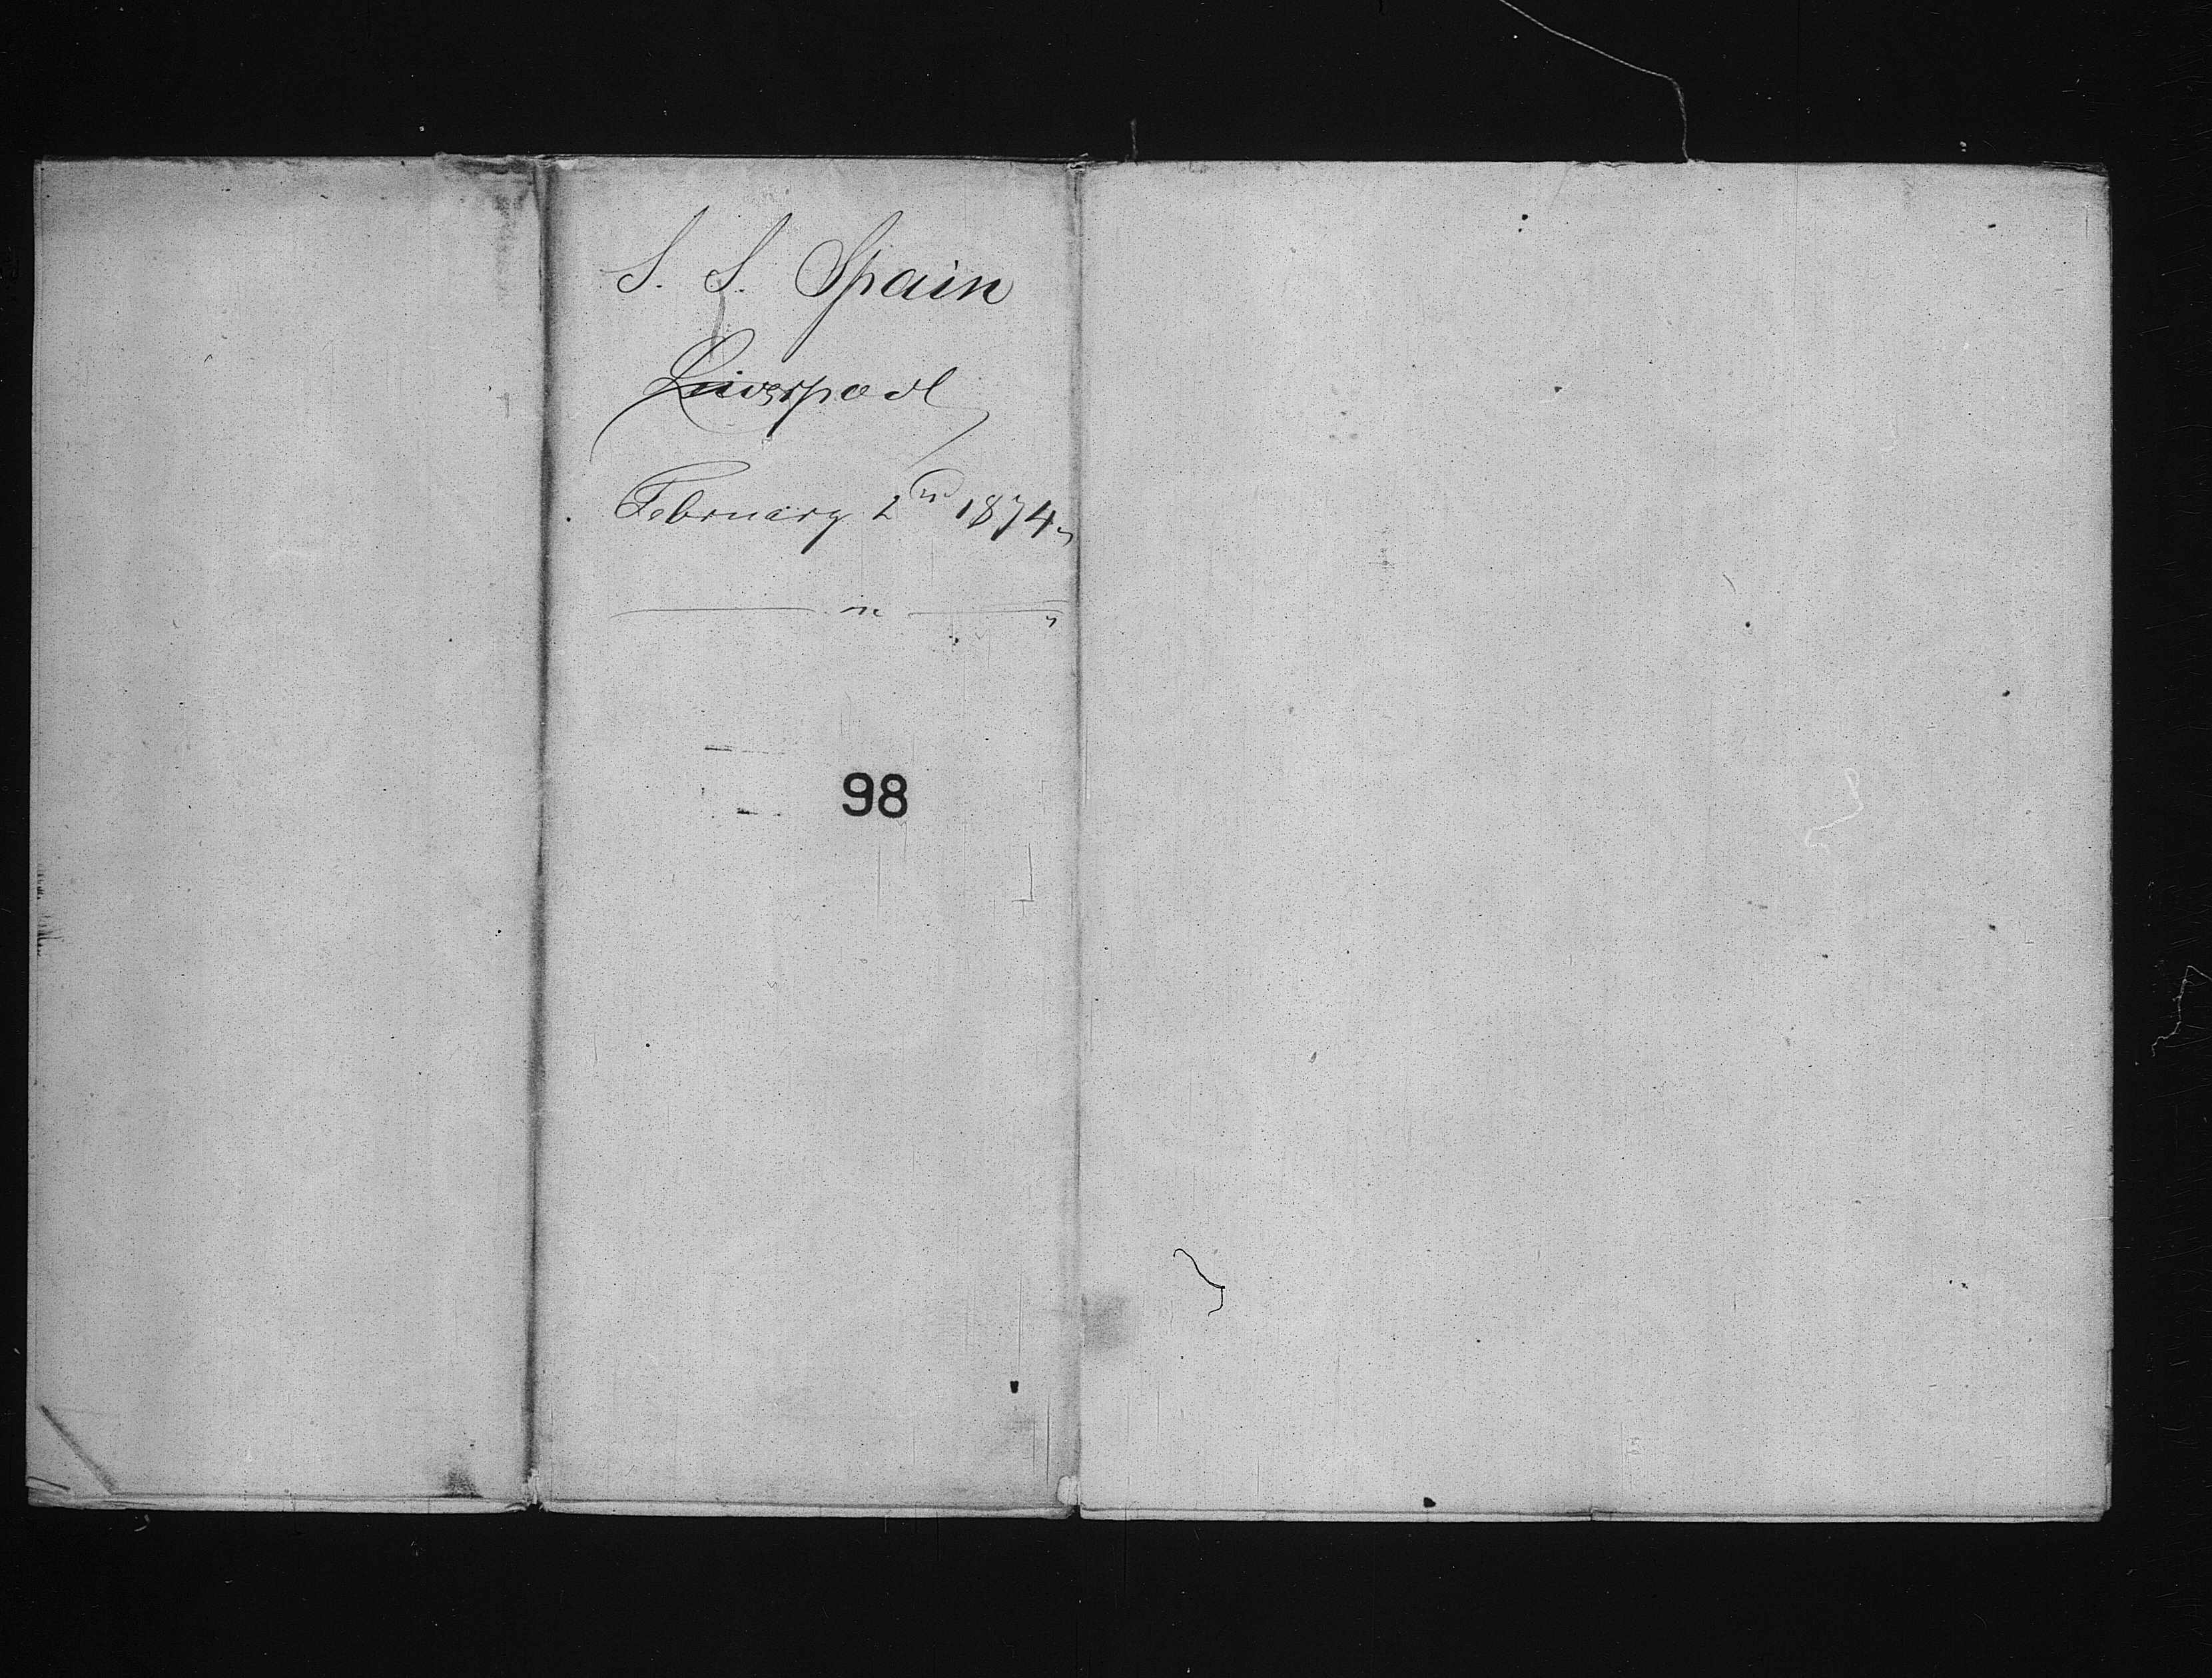 S. S. Spain
Liverpool
February 2nd 1874
98